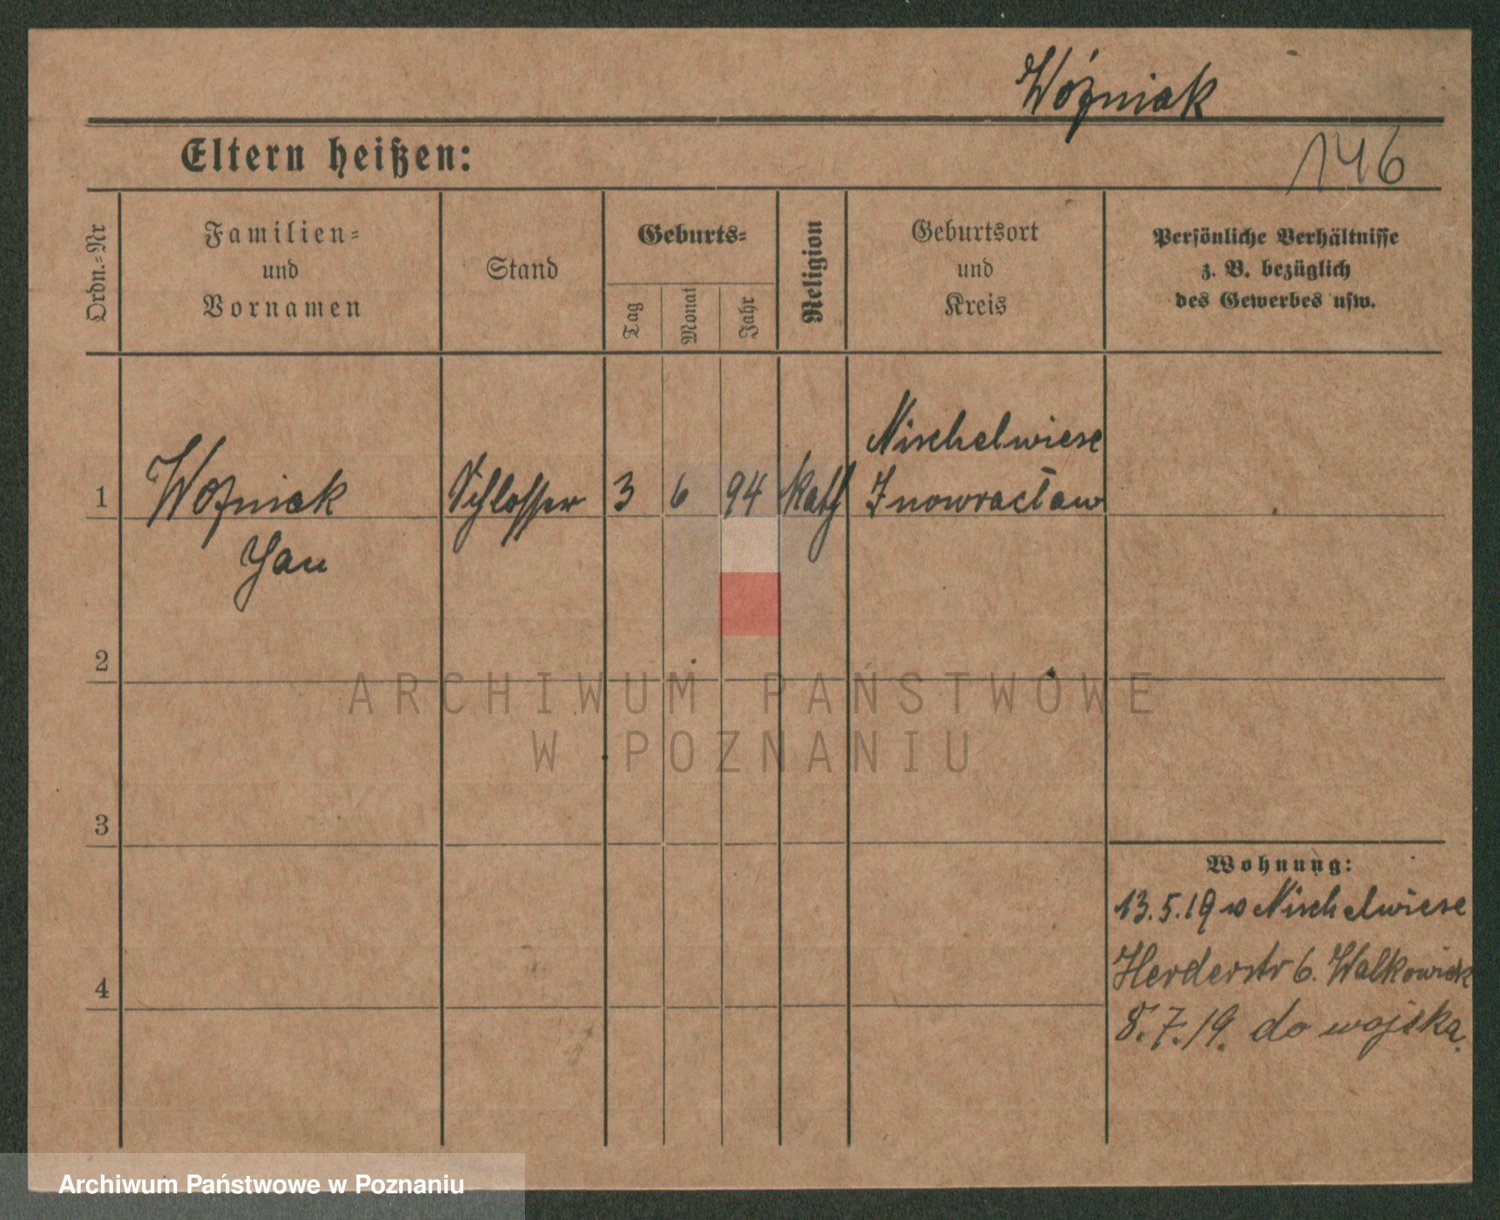 Woźniak
Eltern heißen:
146
Ordn.=Nr
Familien=
und
Vornamen
Stand
Geburts=
Tag
Monat
Jahr
Religion
Geburtsort
und
Kreis
Persönliche Verhältnisse
z. B. bezüglich
des Gewerbes usw.
1
Wozniak
Jan
Schlosser
3
6
94
kath
Nischelwiese
Inowracław
2
3
4
Wohnung:
13.5.19 v Nischelwiese
Herderstr 6. Walkowiak
8.7.19. do wojska.
ARCHIWUM PAŃSTWOWE
W POZNANIU
Archiwum Państwowe w Poznaniu